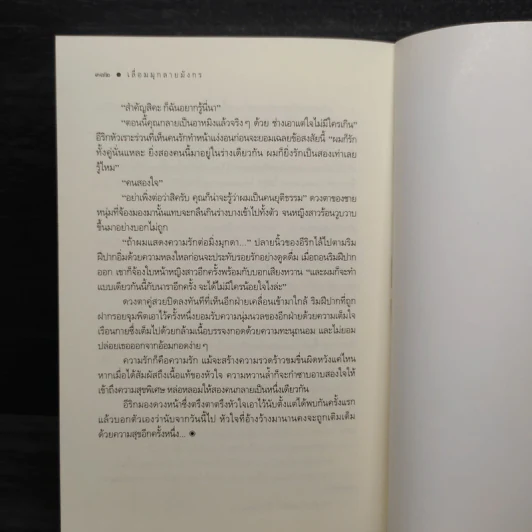 ๓๗๒ ● เลื่อมมุกลายมังกร
“สำคัญสิคะ ก็ฉันอยากรู้นี่นา”
“ตอนนี้คุณกลายเป็นอาหมิงแล้วจริงๆ ด้วย ช่างเอาแต่ใจไม่มีใครเกิน”
อีริกหัวเราะร่วนที่เห็นคนรักทำหน้าแง่งอนก่อนจะยอมเฉลยข้อสงสัยนี้ “ผมก็รัก
ทั้งคู่นั่นแหละ ยิ่งสองคนนี้มาอยู่ในร่างเดียวกัน ผมก็ยิ่งรักเป็นสองเท่าเลย
รู้ไหม”
“คนสองใจ”
“อย่าเพิ่งต่อว่าสิครับ คุณก็น่าจะรู้ว่าผมเป็นคนยุติธรรม” ดวงตาของชาย
หนุ่มที่จ้องมองมานั้นแทบจะกลืนกินร่างบางเข้าไปทั้งตัว จนหญิงสาวร้อนวูบวาบ
ขึ้นมาอย่างบอกไม่ถูก
“ถ้าผมแสดงความรักต่อมิ่งมุกดา...” ปลายนิ้วของอีริกไล้ไปตามริม
ฝีปากอิ่มด้วยความหลงใหลก่อนจะประทับรอยรักอย่างดูดดื่ม เมื่อถอนริมฝีปาก
ออก เขาก็จ้องใบหน้าหญิงสาวอีกครั้งพร้อมกับบอกเสียงหวาน “และผมก็จะทำ
แบบเดียวกันนี้กับนาราอีกครั้ง จะได้ไม่มีใครน้อยใจไงล่ะ”
ดวงตาคู่สวยปิดลงทันทีที่เห็นอีกฝ่ายเคลื่อนเข้ามาใกล้ ริมฝีปากที่ถูก
ฝากรอยจุมพิตเอาไว้ครั้งหนึ่งยอมรับความนุ่มนวลของอีกฝ่ายด้วยความเต็มใจ
เรือนกายซึ่งเต็มไปด้วยกล้ามเนื้อบรรจงกอดด้วยความทะนุถนอม และไม่ยอม
ปล่อยเธอออกจากอ้อมกอดง่ายๆ
ความรักก็คือความรัก แม้จะสร้างความรวดร้าวขมขื่นผิดหวังแค่ไหน
หากเมื่อได้สัมผัสถึงเนื้อแท้ของหัวใจ ความหวานล้ำก็จะกำซาบอาบสองใจให้
เข้าถึงความสุขพิเศษ หล่อหลอมให้สองคนกลายเป็นหนึ่งเดียวกัน
อีริกมองดวงหน้าซึ่งตรึงตาตรึงหัวใจเอาไว้นับตั้งแต่ได้พบกันครั้งแรก
แล้วบอกตัวเองว่านับจากวันนี้ไป หัวใจที่อ้างว้างมานานคงจะถูกเติมเต็ม
ด้วยความสุขอีกครั้งหนึ่ง... ◉